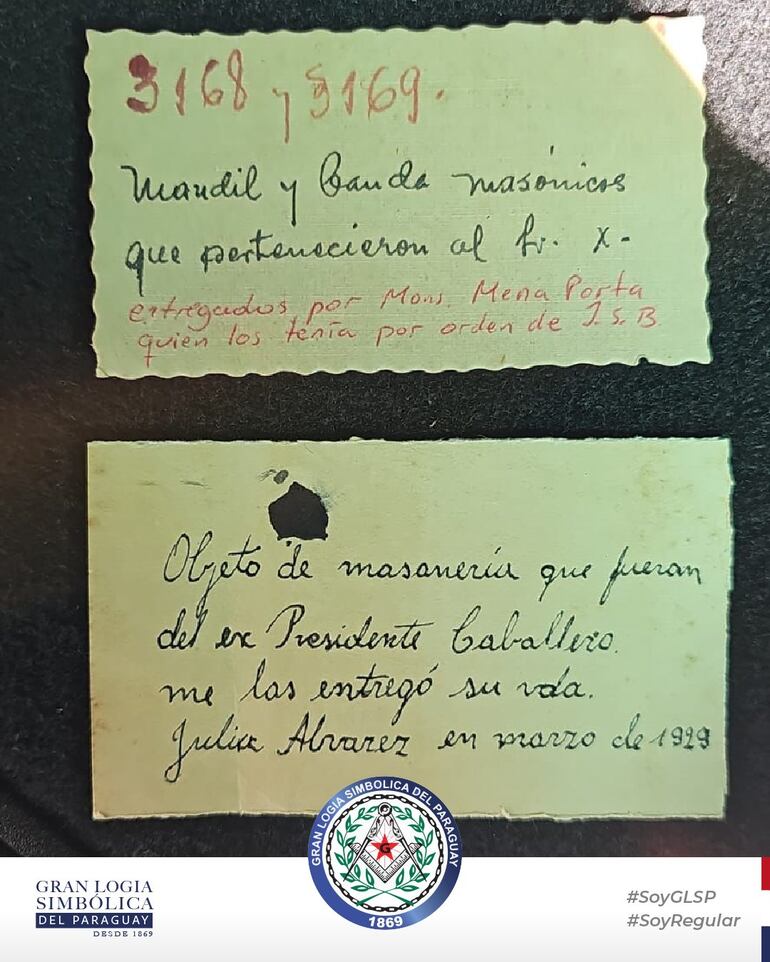 3168 y 3169.
Mandil y banda masónicos
que pertenecieron al Fr. X-
entregados por Mons. Mena Porta
quien los tenía por orden de J. S. B.
Objeto de masonería que fueran
del ex Presidente Caballero.
me las entregó su vda.
Julia Alvarez en marzo de 1929
GRAN LOGIA SIMBOLICA DEL PARAGUAY
G
1869
GRAN LOGIA
SIMBÓLICA
DEL PARAGUAY
DESDE 1869
#SoyGLSP
#SoyRegular